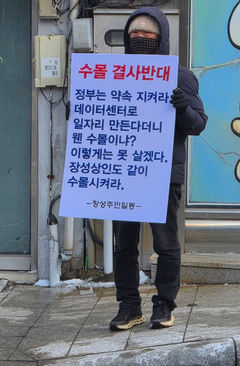 수몰 결사반대
정부는 약속 지켜라
데이터센터로
일자리 만든다더니
웬 수몰이냐?
이렇게는 못 살겠다.
장성상인도 같이
수몰시켜라.
-장성주민일동-